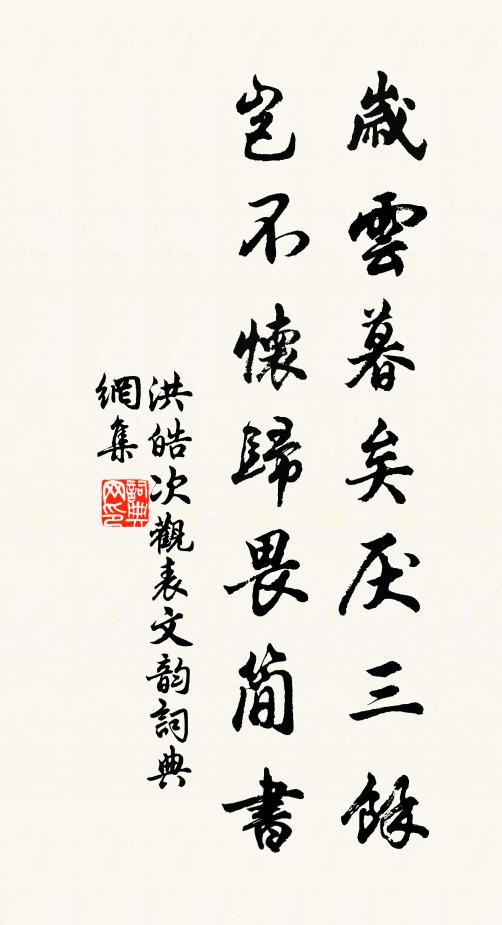 歲雲暮矣厌三餘
豈不懷歸畏簡書
洪皓次觀表文韵詞典
網集
詞典
网印